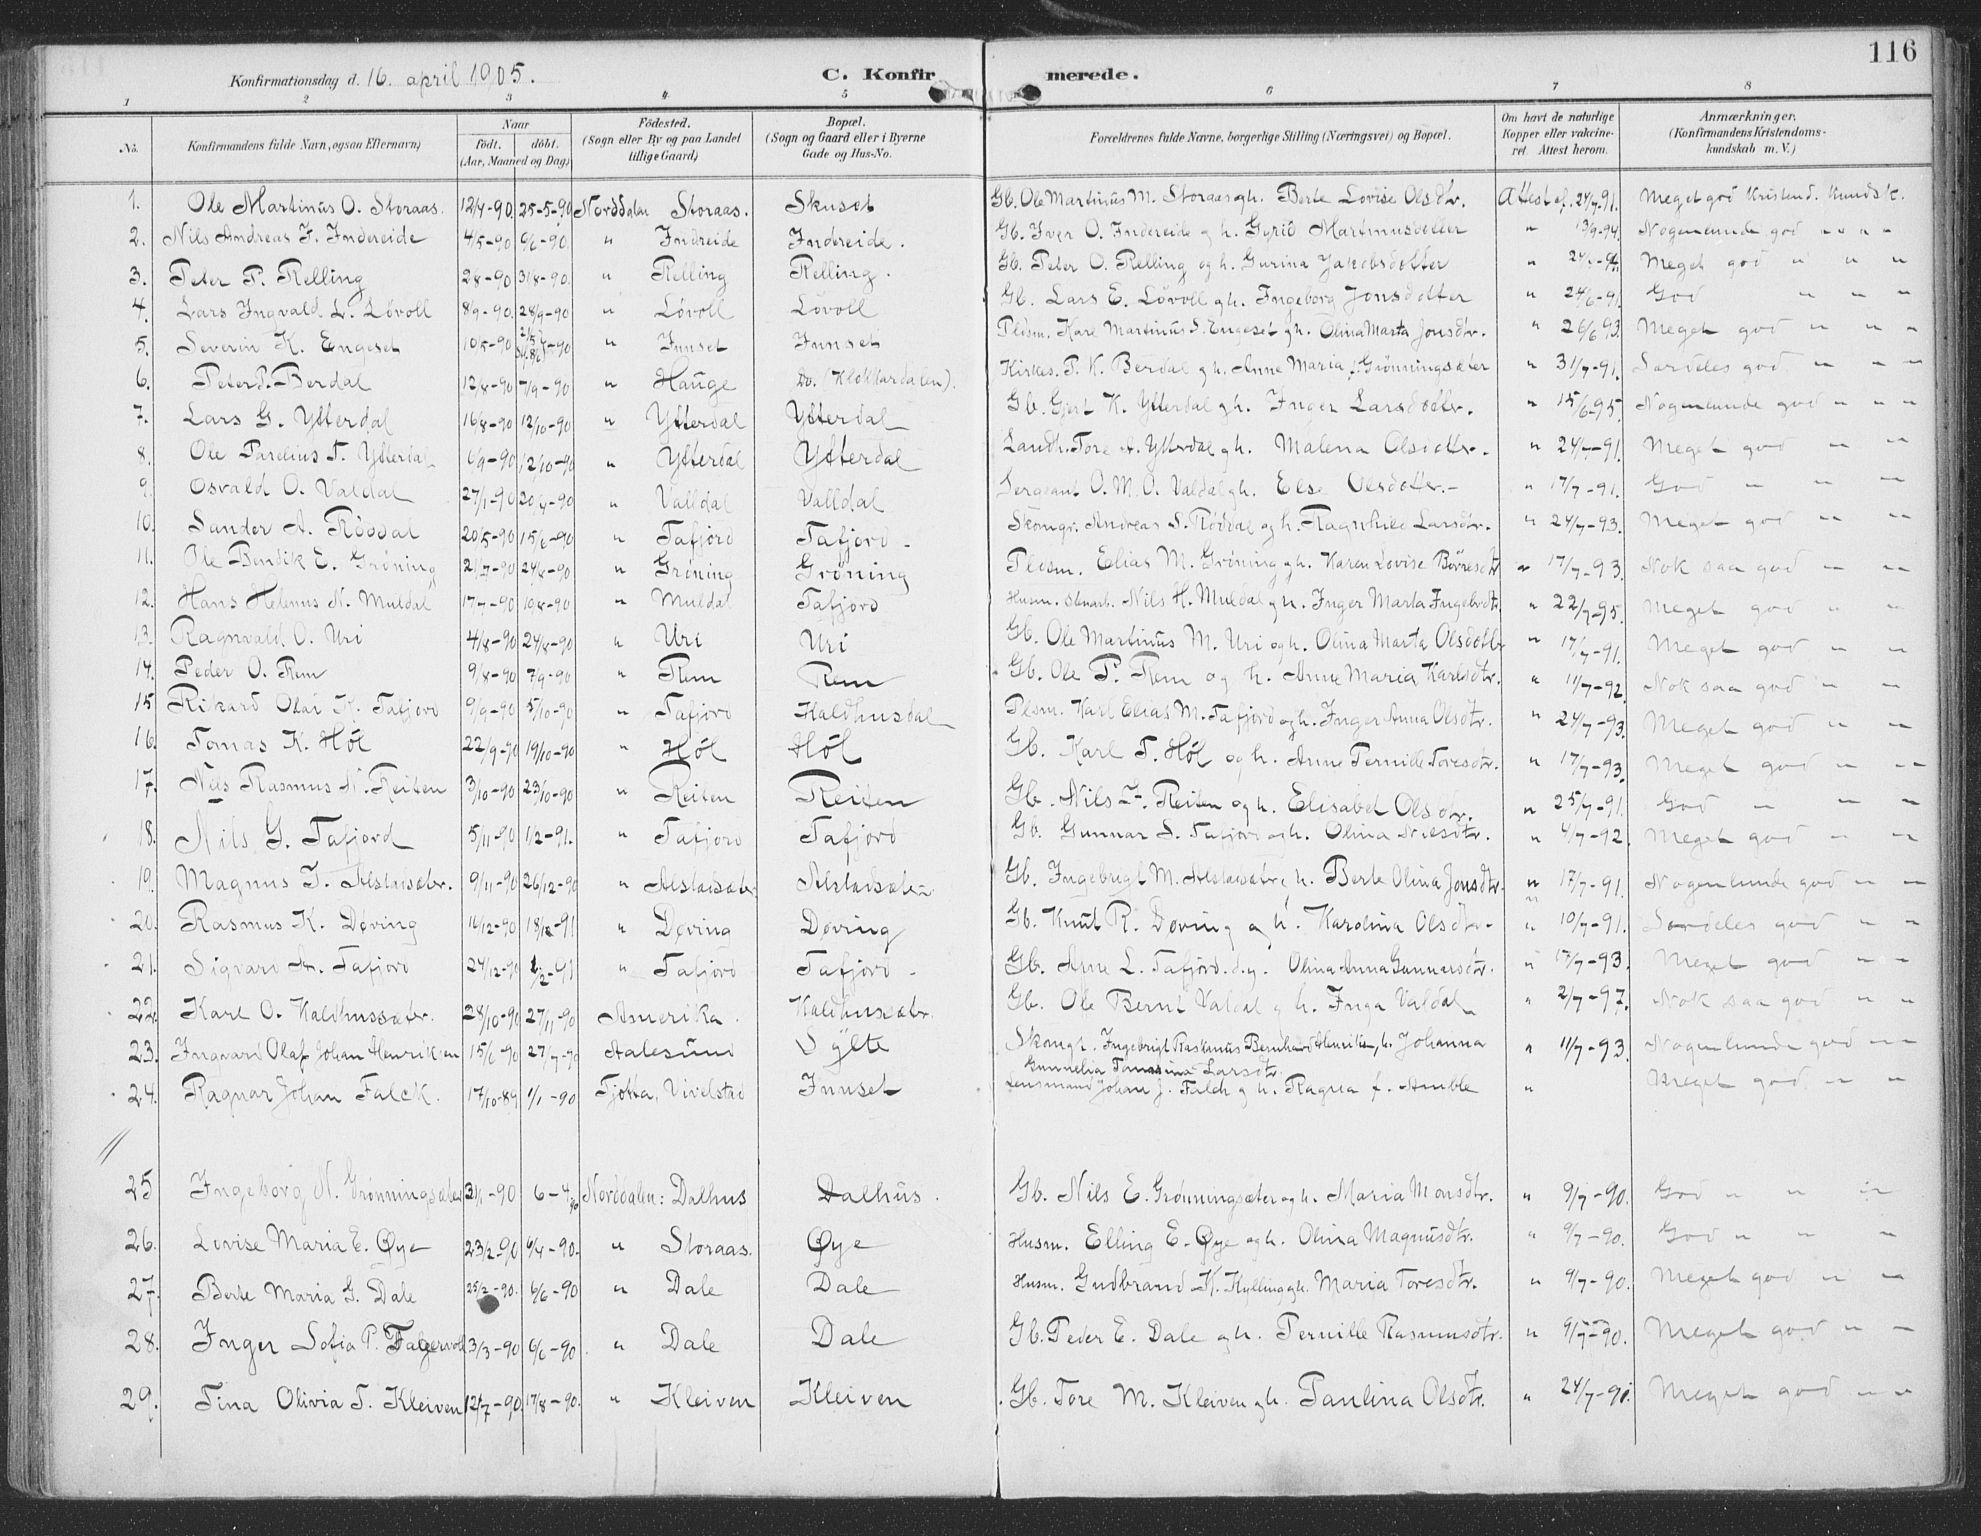 116
Konfirmationsdag d. 16. april 1905. C. Konfirmerede.
1 2 3 4 5 6 7 8
No. Konfirmandens fulde Navn, ogsaa Efternavn) Naar født. døbt. (Aar, Maaned og Dag) Fødested. (Sogn eller By og paa Landet tillige Gaard) Bopæl. (Sogn og Gaard eller i Byerne Gade og Hus-No. Forældrenes fulde Navne, borgerlige Stilling (Næringsvei) og Bopæl. Om havt de naturlige Kopper eller vakcineret. Attest herom. Anmærkninger. (Konfirmandens Kristendomskundskab m. V.)
1. Ole Martinus O. Storaas. 12/4-90 25-5-90 Norddalen Storaas. Skuset Gb. Ole Martinus M. Storaas gh. Berte Lovise Olsdtr. Attest af. 24/7-91. Meget god Kristend. Kundsk.
2. Nils Andreas I. Indreeide 4/5-90 6/6-90. " Indreeide Indreeide. Gb. Iver O. Indreeide og h. Gyrid Martinusdatter " 13/9-94. Nogenlunde god " " "
3. Peter P. Relling 2/8-90 31/8-90. " Relling Relling. Gb. Peter O. Relling og h. Gurina Jakobsdotter " Meget god " " "
4. Lars Ingvald L. Løvoll 8/9-90. 28/9-90 " Løvoll Løvoll Gb. Lars E. Løvoll gh. Ingeborg Jonsdotter " 24/6-91 God " " "
5. Severin K. Engeset 10/5-90 " Innset Innset Pldsm. Karl Martinus S. Engeset gh. Olina Marta Jonsdtr. " 26/6 93. Meget god " " "
6. Peter P. Berdal 12/8-90 7/9-90 " Hauge Do. (Klokkardalen). Kirkes. P. K. Berdal gh. Anne Maria f. Grønningsæter " 31/7-91. Særdeles god " " "
7. Lars G. Ytterdal 16/8-90 12/10-90 " Ytterdal Ytterdal Gb. Gjert K. Ytterdal gh. Inger Larsdotr. " 15/6-95. Nogenlunde god " " "
8. Ole Parelius T. Ytterdal 6/9-90 12/10-90 " Ytterdal Ytterdal Landh. Tore A. Ytterdal gh. Malena Olsdotr. " 24/7-91. Meget god " "
9. Osvald O. Valdal 27/1-90 20/4-90 " Valldal Valldal Sergeant O. M. O. Valdal gh. Else Olsdotr. " 17/7-91. God " " "
10. Sander A. Rødsdal 20/5-90 15/6-90 " Tafjord Tafjord Skomgr. Andreas S. Røddal og h. Ragnhild Larsdtr. " 24/7-93. Meget god " "
11. Ole Bendik E. Grøning 21/7-90 24/8-90 " Grøning Grøning Pldsm. Elias M. Grøning gh. Karen Lovise Børresdtr " 17/7-93. Nok saa god " "
12. Hans Helenus N. Muldal 17/7-90 10/8-90 " Muldal Tafjord Husm. Nils H. Muldal gh. Inger Marta Ingebrdtr. " 22/7-95. Meget god " "
13. Ragnvald O. Uri 4/8-90 24/8-90 " Uri Uri Gb. Ole Martinus M. Uri og h. Olina Marta Olsdottr " 17/7-91. Meget god " "
14. Peder O. Rem 9/8-90 7/9-90 " Rem Rem Gb. Ole P. Rem og h. Anne Maria Karlsdtr. " 11/7-92. Nok saa god " "
15 Rikard Olai K. Tafjord 9/9-90 5/10-90 " Tafjord Kaldhusdal Plsm. Karl Elias M. Tafjord og h. Inger Anna Olsdtr. " 24/7-93. Meget god " "
16. Tomas K. Høl 22/9-90 19/10-90 " Høl Høl Gb. Karl T. Høl og h. Anne Pernille Toresdtr. " 17/7-93. Meget god " "
17. Nils Rasmus N. Reiten 3/10-90 23/10-90 " Reiten Reiten Gb. Nils L. Reiten og h. Elisabet Olsdtr. " 25/7-91. God " " "
18. Nils G. Tafjord 5/11-90 1/2-91. " Tafjord Tafjord Gb. Gunnar S. Tafjord og h. Olina Nilsdtr. " 4/7-92. Meget god " "
19. Magnus I. Alstadsæter. 9/11-90 26/12-90 " Alstadsæter Alstadsæter Gb. Ingebrigt M. Alstadsæter, h. Berte Olina Jonsdtr. " 17/7-91. Nogenlunde god " "
20. Rasmus K. Døving 16/12-90 " Døving Døving Gb. Knut R. Døving og h. Karolina Olsdtr. " 10/7-91. Særdeles god " "
21. Sigvard A. Tafjord 24/12-90 1/2-91 " Tafjord Tafjord Gb. Arne L. Tafjord. Olina Anna Gunnarsdtr. " 17/7-93. Meget god " "
22. Karl O. Kaldhussæter. 28/10-90 27/11-90 Amerika. Kaldhussæter. Gb. Ole Bernt Valdal gh. Inga Valdal " 2/7-97. Nok saa god " "
23. Ingvard Olaf Johan Henriksen 15/6-90 27/7-90 Aalesund Sylte Skomgr. Ingebrigt Rasmus Bernhard Henriksen, h. Johanna Gunnelia Tomasina Larsdtr. " 11/7-93. Nogenlunde god " "
24. Ragnar Johan Falck. 17/10-89 1/1-90 Tjøtta, Vivelstad Innset Lensmand Johan J. Falch gh. Ragna f. Amble " Meget god " "
25 Ingeborg N. Grønningsæter 6-4 90 Norddalen: Dalhus Dalhus. Gb. Nils E. Grønningsæter og h. Maria Monsdtr. " 9/7-90. God " " "
26. Lovise Maria E. Øye 23/2-90 6/4-90. " Storaas. Øye Husm. Elling E. Øye og h. Olina Magnusdtr. " 9/7-90. God " " "
27. Berte Maria G. Dale 25/2-90. 6/6-90 " Dale Dale Husm. Gudbrand K. Kylling gh. Maria Toresdtr. " 9/7-90. Meget god " "
28. Inger Sofia P. Fagervoll 3/3-90 6/6-90. " Dale Dale Gb. Peder E. Dale gh. Pernille Rasmusdtr. " 9/7-90. Meget god " "
29. Tina Olivia T. Kleiven 12/7-90. 17/8-90. " Kleiven Kleiven Gb. Tore M. Kleiven gh. Paulina Olsdtr. " 24/7-91. Meget god " "